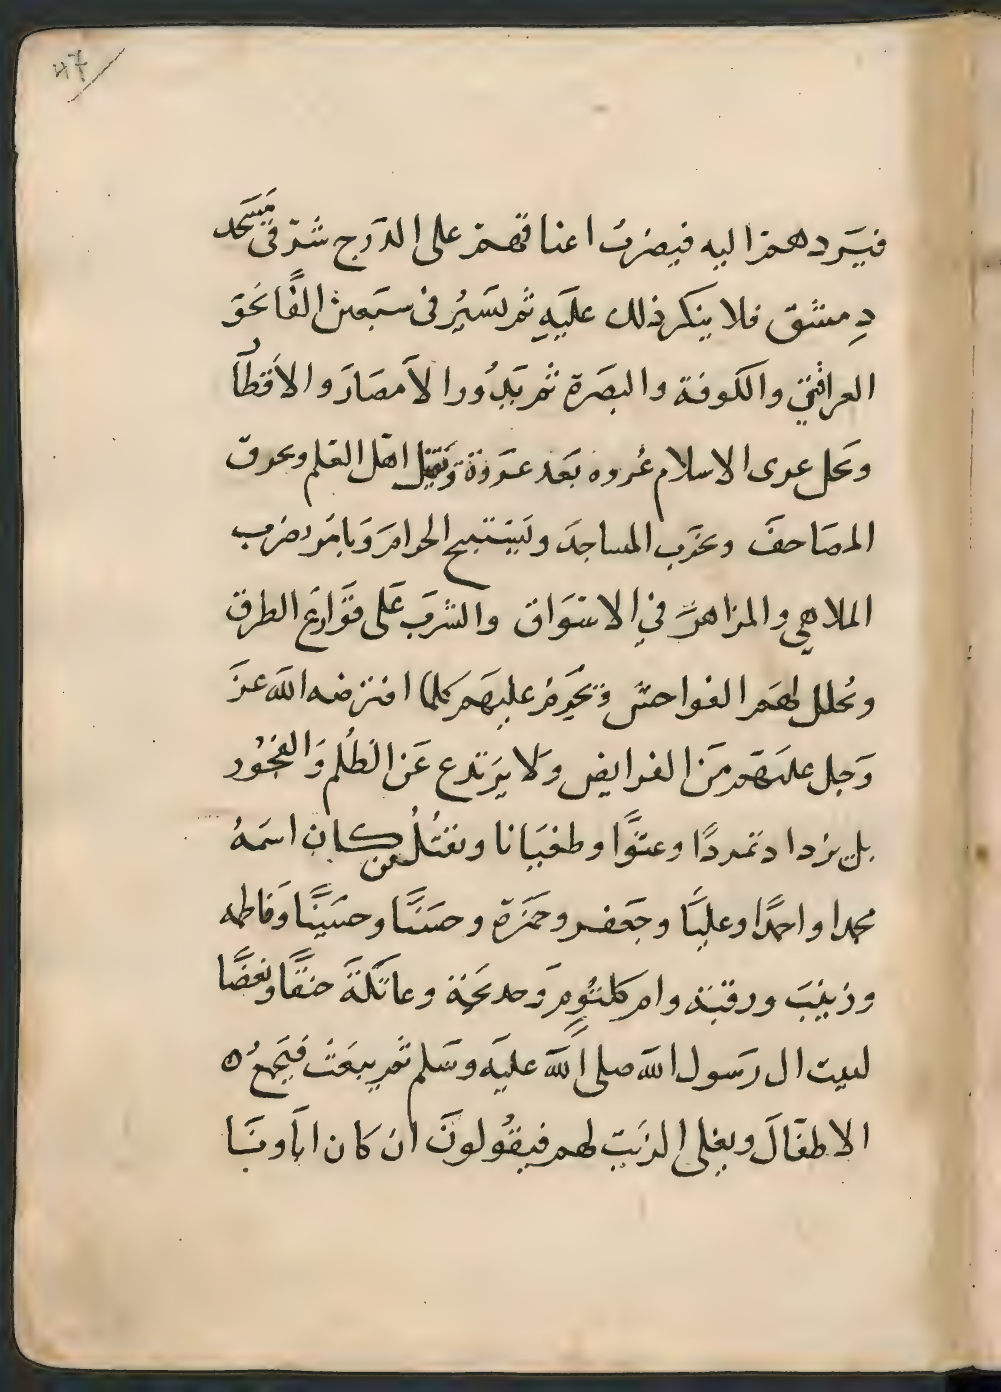 47
فيردهم اليه فيضرب اعناقهم على الدرج شرقي مسجد
دمشق فلا ينكر ذلك عليه ثم يسير في سبعين الفًا نحو
العراقين والكوفة والبصرة ثم يدور الامصار والاقطا
ويحل عرى الاسلام عروه بعد عروة ويقتل اهل العلم ويحرق
المصاحف ويخرب المساجد ويستبيح الحرام ويامر بضرب
الملاهي والمزاهر في الاسواق والشرب على قوارع الطرق
ويحلل لهم الفواحش ويحرم عليهم كلما افترضه الله عز
وجل عليهم من الفرايض ولا يرتدع عن الظلم والفجور
بل يزداد تمردًا وعتوًّا وطغيانا ويقتل من كان اسمه
محمدا واحمدًا وعليًا وجعفر وحمزة وحسنًا وحسينًا وفاطمه
وزينب ورقية وام كلثوم وخديجة وعاتكة حنقًا وبغضًا
لبيت ال رسول الله صلى الله عليه وسلم ثم يبعث فيجمع
الاطفال ويغلي الزيت لهم فيقولون ان كان اباونا